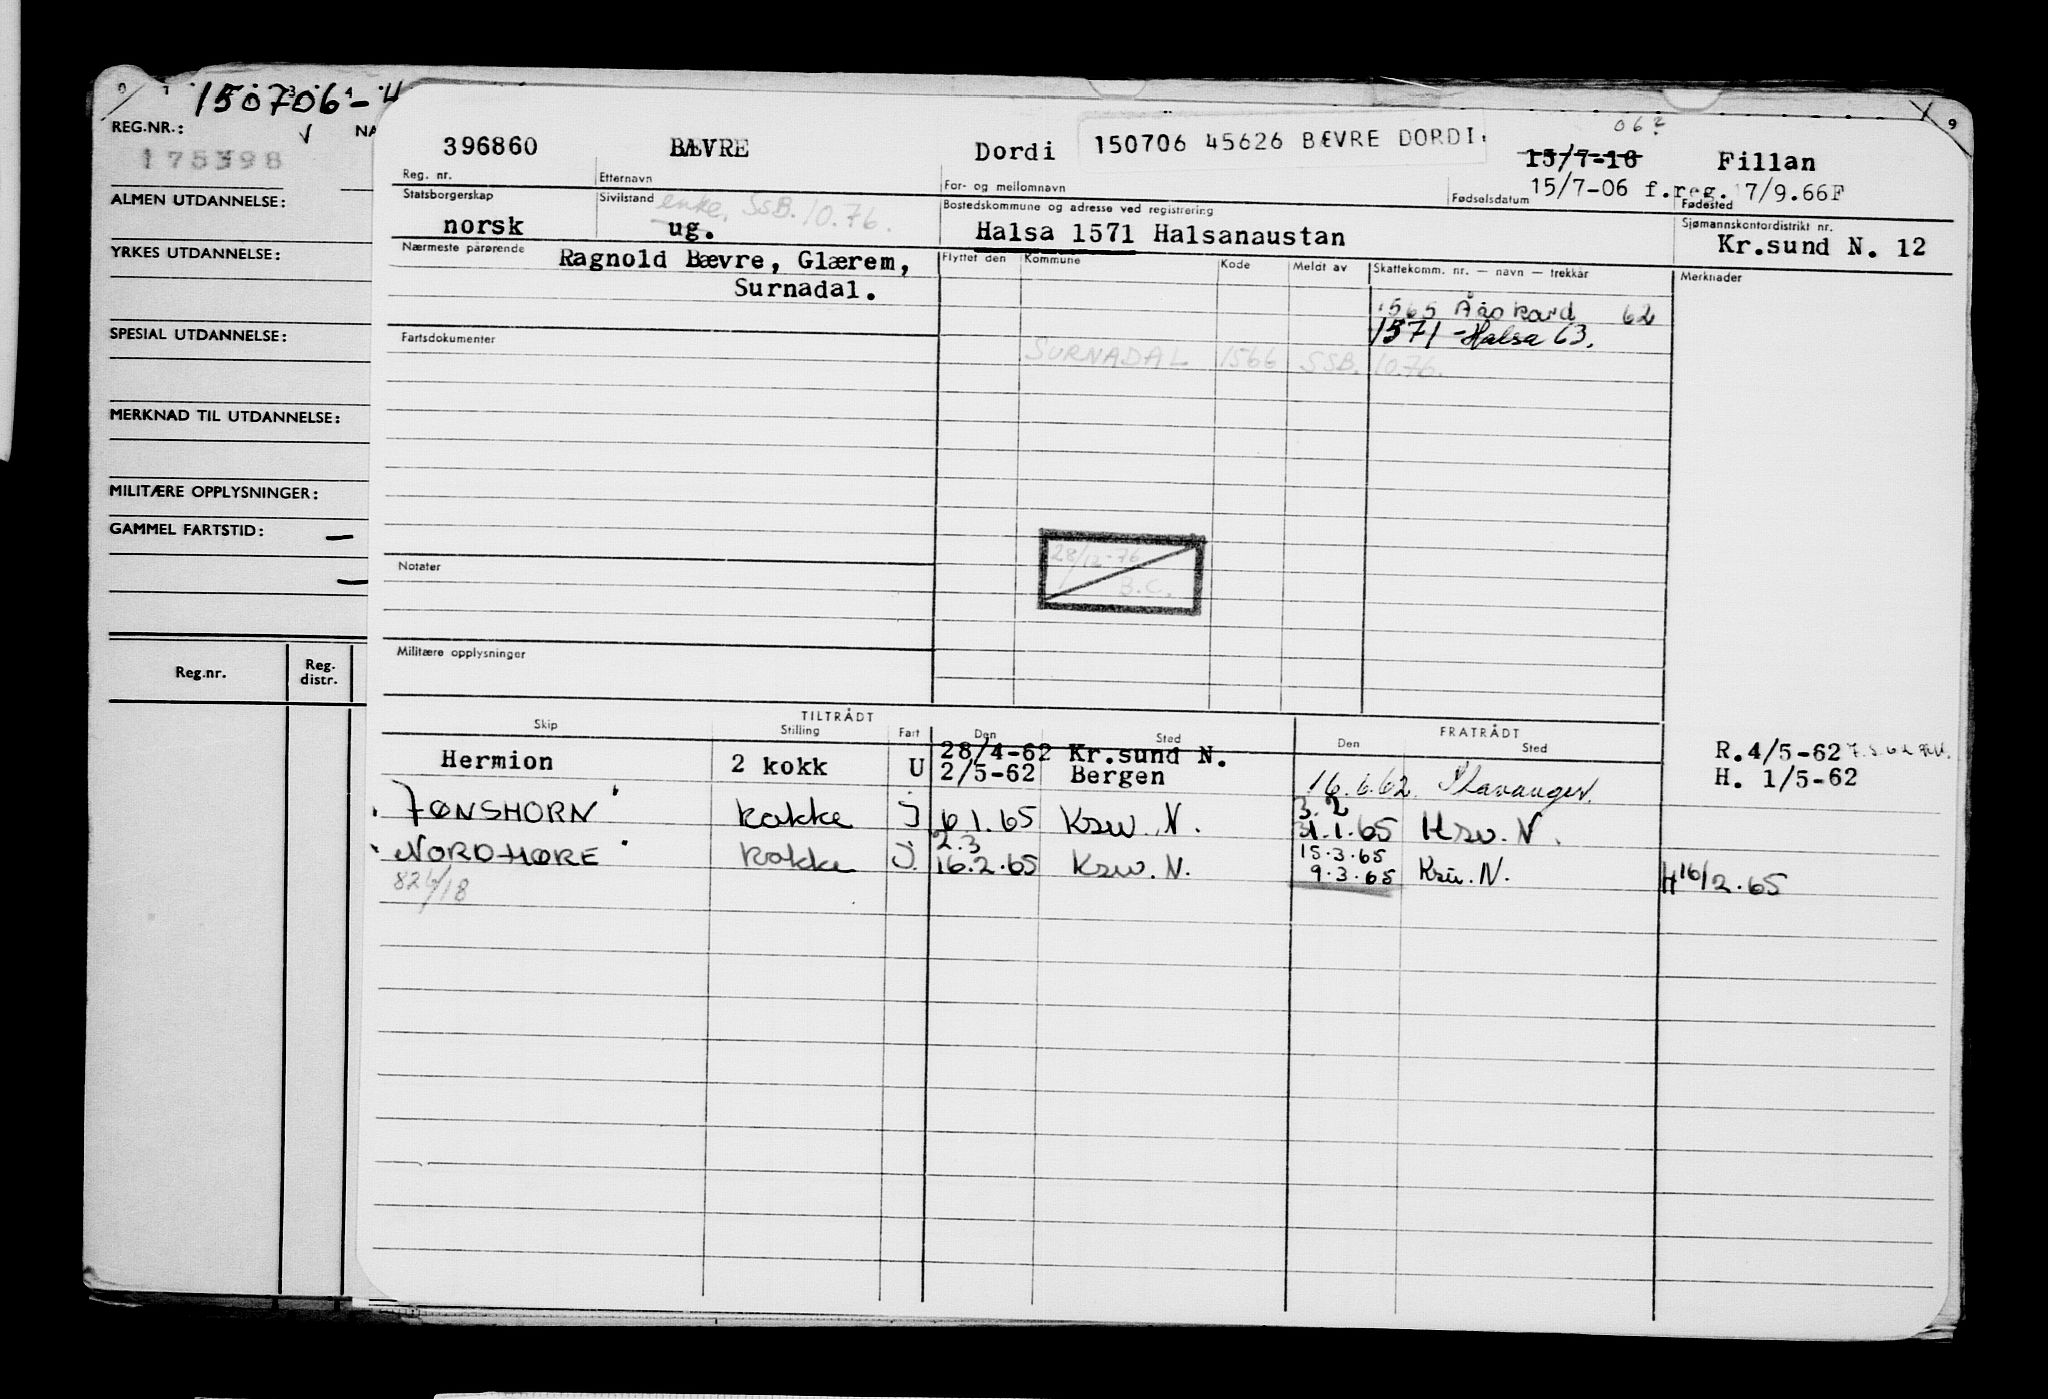 150706-4
REG.NR.:
NA
175398
ALMEN UTDANNELSE:
YRKES UTDANNELSE:
SPESIAL UTDANNELSE:
MERKNAD TIL UTDANNELSE:
MILITÆRE OPPLYSNINGER:
GAMMEL FARTSTID: —
—
Reg.nr. Reg. distr.
06?
9
396860 BÆVRE Dordi 150706 45626 BÆVRE DORDI. 15/7-16 Fillan
Reg. nr. Etternavn For- og mellomnavn Fødselsdatum 15/7-06 f.reg. 17/9.66F Fødested
Statsborgerskap Sivilstand enke, SSB. 10.76. Bostedskommune og adresse ved registrering Sjømannskontordistrikt nr.
norsk ug. Halsa 1571 Halsanaustan Kr.sund N. 12
Nærmeste pårørende Ragnold Bævre, Glærem,
Surnadal.
Flyttet den Kommune Kode Meldt av Skattekomm. nr. — navn — trekkår Merknader
1565 Åsskard 62
1571 - Halsa 63.
Fartsdokumenter
SURNADAL 1566 SSB. 10.76.
28/12-76
B.C.
Notater
Militære opplysninger
TILTRÅDT FRATRÅDT
Skip Stilling Fart Den Sted Den Sted
Hermion 2 kokk U 28/4-62 Kr.sund N. R.4/5-62
2/5-62 Bergen 16.6.62 Stavanger. H. 1/5-62
TØNSHORN kokke J 6.1.65 Ksu. N. 3.2
31.1.65 Ksu. N.
NORDMØRE kokke J. 2.3
16.2.65 Ksu. N. 15.3.65
9.3.65 Ksu. N. H 16/2.65
826/18